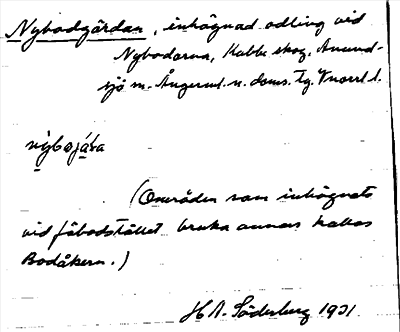 Nybodgärdan, inhägnad odling vid
Nybodarna, Kubbe skog, Anund-
sjö m. Ångerml. n. doms. tg. Vnorrl. l.
nýbogá̠ḷa
(Områden som inhägnats
vid fäbodstället bruka annars kallas
Bodåkern.)
H A. Söderberg 1931